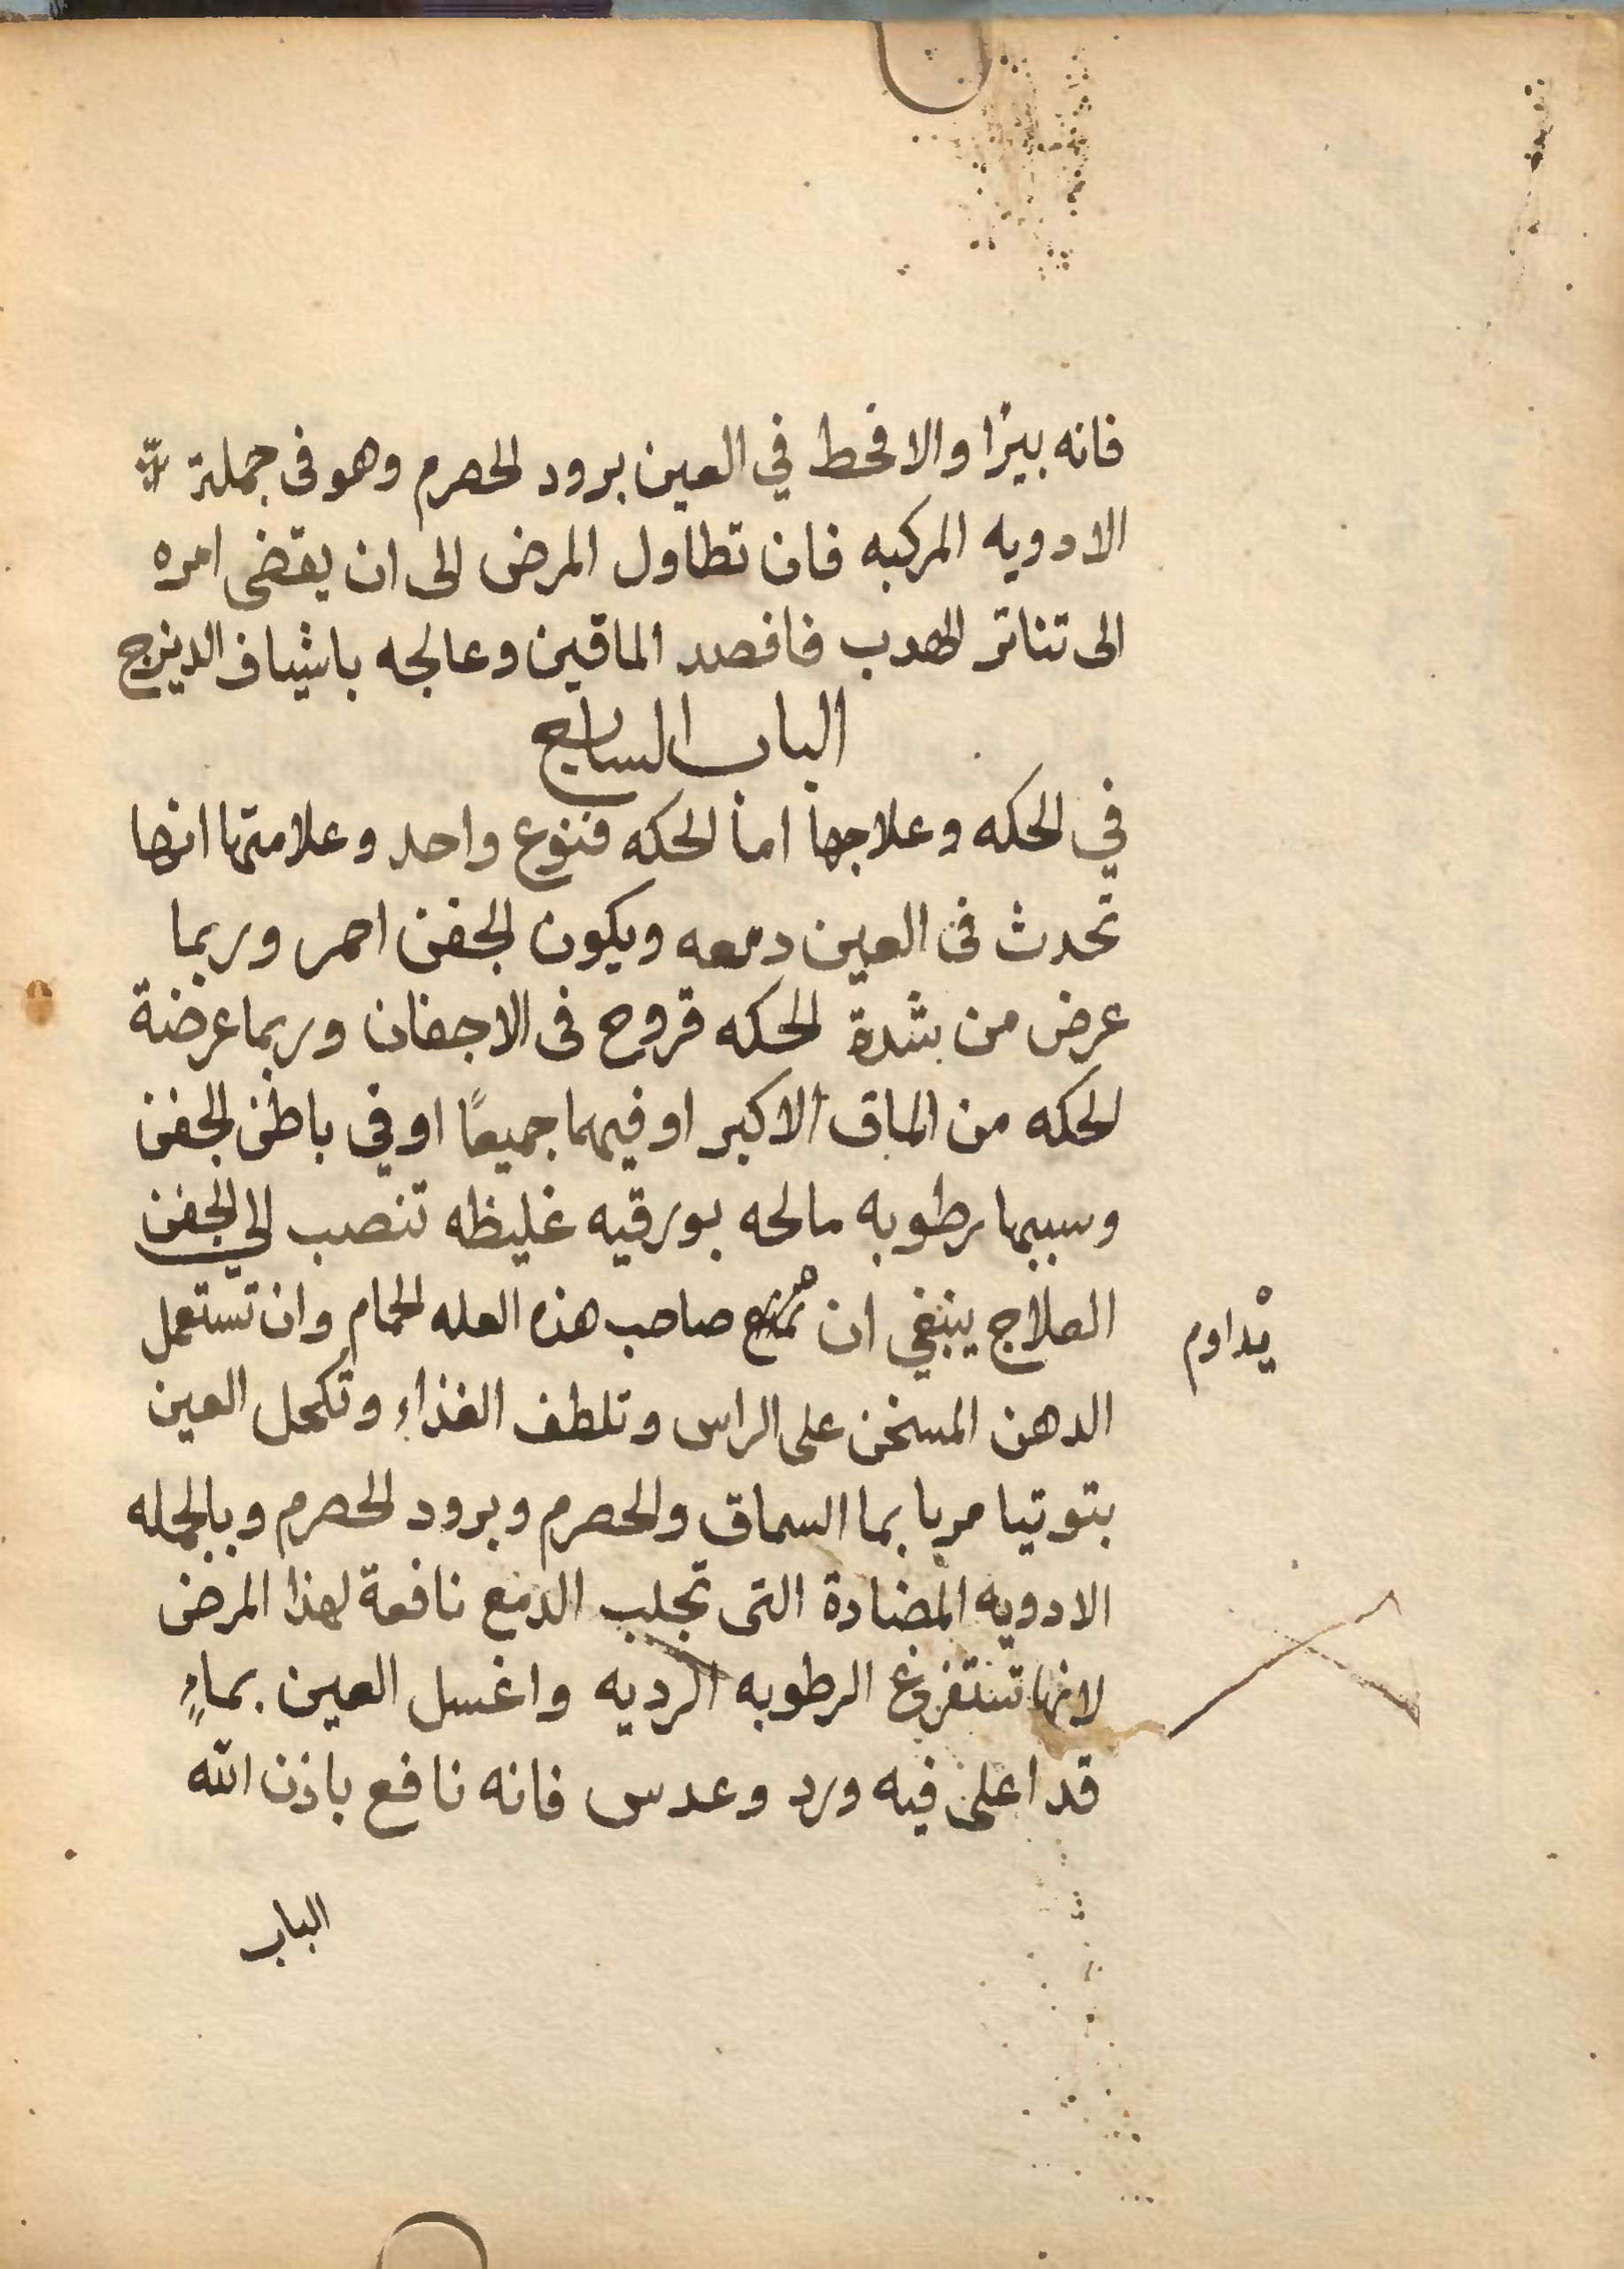 فانه يبرا والا فحط في العين برود الحصرم وهو فى جملة
الادويه المركبه فان تطاول المرض الى ان يقضى امره
الى تناتر الهدب فافصد الماقين وعالجه باشياف الدينرج
الباب السابع
في الحكه وعلاجها اما الحكه فنوع واحد وعلامتها انها
تحدث فى العين دمعه ويكون الجفن احمر وربما
عرض من شدة الحكه قروح فى الاجفان وربما عرضة
الحكه من الماق الاكبر او فيهما جميعًا او في باطن الجفن
وسببها رطوبه مالحه بورقيه غليظه تنصب الى الجفن
العلاج ينبغي ان يمنع صاحب هذه العله الحمام وان تستعمل
يداوم
الدهن المسخن على الراس وتلطف الغذاء وتكحل العين
بتوتيا مربا بما السماق والحصرم وبرود الحصرم وبالجمله
الادويه المضادة التى تجلب الدمع نافعة لهذا المرض
لانها تستفرغ الرطوبه الرديه واغسل العين بماءٍ
قد اعلى فيه ورد وعدس فانه نافع باذن الله
الباب